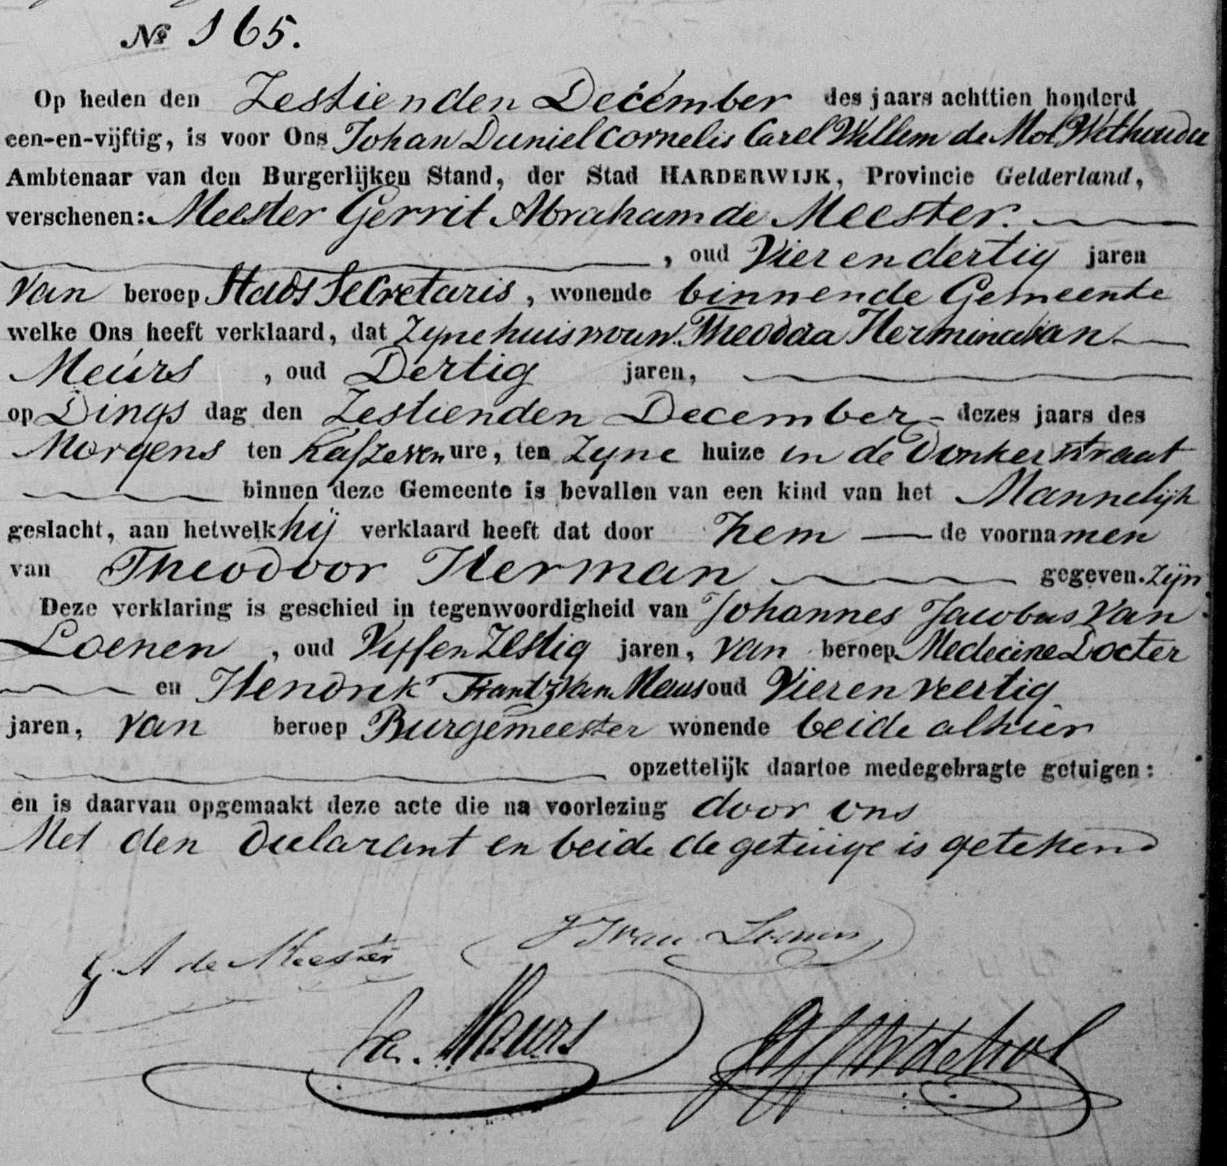 № 165.
Op heden den Zestienden December des jaars achttien honderd
een-en-vijftig, is voor Ons Johan Daniel Cornelis Carel Willem de Mol, Wethouder
Ambtenaar van den Burgerlijken Stand, der Stad HARDERWIJK, Provincie Gelderland,
verschenen: Meester Gerrit Abraham de Meester.
, oud Vier en dertig jaren
van beroep Stads Secretaris, wonende binnen de Gemeente
welke Ons heeft verklaard, dat Zyne huisvrouw Theodora Hermina van
Meurs , oud Dertig jaren,
op Dings dag den Zestienden December dezes jaars des
Morgens ten half zeven ure, ten Zyne huize in de Donkerstraat
binnen deze Gemeente is bevallen van een kind van het Mannelijk
geslacht, aan hetwelk hij verklaard heeft dat door hem de voornamen
van Theodoor Herman gegeven. zijn
Deze verklaring is geschied in tegenwoordigheid van Johannes Jacobus van
Loenen , oud Vyf en Zestig jaren, van beroep Medecine Docter
en Hendrik Frantz van Meurs oud Vier en veertig
jaren, van beroep Burgemeester wonende beide alhier
opzettelijk daartoe medegebragte getuigen:
en is daarvan opgemaakt deze acte die na voorlezing door ons
Met den Declarant en beide de getuige is getekend
G. A de Meester J J van Loenen
Meurs de Mol